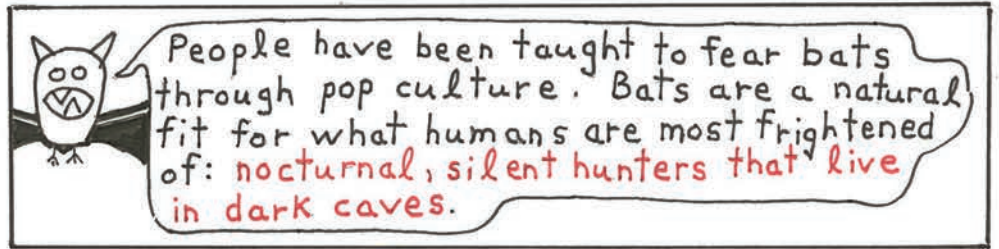 People have been taught to fear bats
through pop culture. Bats are a natural
fit for what humans are most frightened
of: nocturnal, silent hunters that live
in dark caves.